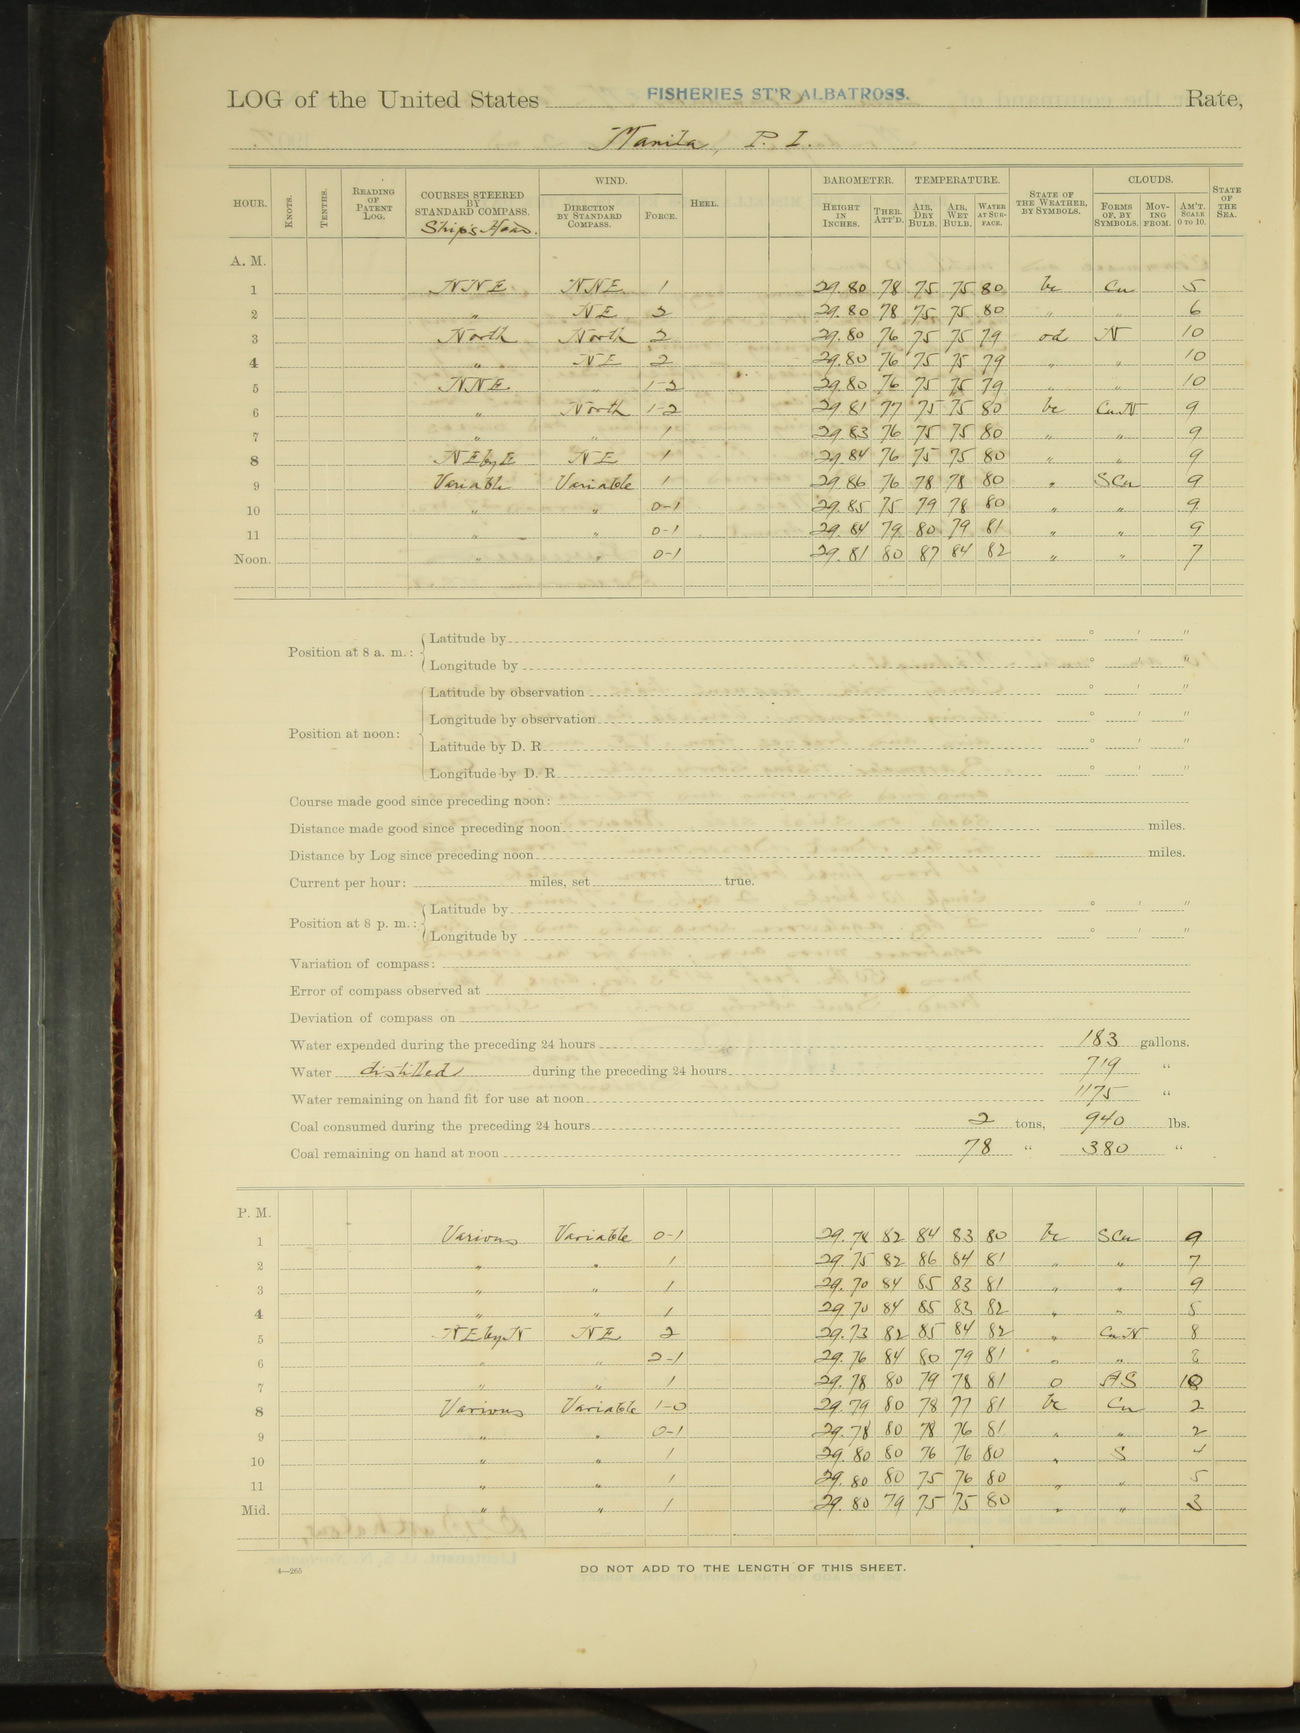 LOG of the United States FISHERIES ST'R ALBATROSS. Rate,
Manila, P. I.
HOUR. KNOTS. TENTHS. READING OF PATENT LOG. COURSES STEERED BY STANDARD COMPASS. Ship's Head. WIND. DIRECTION BY STANDARD COMPASS. FORCE. HEEL. BAROMETER. HEIGHT IN INCHES. THER. ATT'D. TEMPERATURE. AIR, DRY BULB. AIR, WET BULB. WATER AT SURFACE. STATE OF THE WEATHER, BY SYMBOLS. CLOUDS. FORMS OF, BY SYMBOLS. MOVING FROM. AM'T. SCALE 0 TO 10. STATE OF THE SEA.
A. M.
1 NNE NNE 1 29.80 78 75 75 80 bc Cu 5
2 " NE 2 29.80 78 75 75 80 " " 6
3 North North 2 29.80 76 75 75 79 od N 10
4 " NE 2 29.80 76 75 75 79 " " 10
5 NNE " 1-2 29.80 76 75 75 79 " " 10
6 " North 1-2 29.81 77 75 75 80 bc Cu.N 9
7 " " 1 29.83 76 75 75 80 " " 9
8 NEbyE NE 1 29.84 76 75 75 80 " " 9
9 Variable Variable 1 29.86 76 78 78 80 " SCu 9
10 " " 0-1 29.85 75 79 78 80 " " 9
11 " " 0-1 29.84 79 80 79 81 " " 9
Noon. " " 0-1 29.81 80 87 84 82 " " 7
Position at 8 a. m.: Latitude by ° ′ ″
Longitude by ° ′ ″
Position at noon: Latitude by observation ° ′ ″
Longitude by observation ° ′ ″
Latitude by D. R. ° ′ ″
Longitude by D. R. ° ′ ″
Course made good since preceding noon:
Distance made good since preceding noon miles.
Distance by Log since preceding noon miles.
Current per hour: miles, set true.
Position at 8 p. m.: Latitude by ° ′ ″
Longitude by ° ′ ″
Variation of compass:
Error of compass observed at
Deviation of compass on
Water expended during the preceding 24 hours 183 gallons.
Water distilled during the preceding 24 hours 719 "
Water remaining on hand fit for use at noon 1175 "
Coal consumed during the preceding 24 hours 2 tons, 940 lbs.
Coal remaining on hand at noon 78 " 380 "
P. M.
1 Various Variable 0-1 29.78 82 84 83 80 bc SCu 9
2 " " 1 29.75 82 86 84 81 " " 7
3 " " 1 29.70 84 85 83 81 " " 9
4 " " 1 29.70 84 85 83 82 " " 5
5 NEbyN NE 2 29.73 82 85 84 82 " Cu.N 8
6 " " 2-1 29.76 84 80 79 81 " " 8
7 " " 1 29.78 80 79 78 81 o A.S 10
8 Various Variable 1-0 29.79 80 78 77 81 bc Cu 2
9 " " 0-1 29.78 80 78 76 81 " " 2
10 " " 1 29.80 80 76 76 80 " S 4
11 " " 1 29.80 80 75 76 80 " " 5
Mid. " " 1 29.80 79 75 75 80 " " 3
4—265 DO NOT ADD TO THE LENGTH OF THIS SHEET.